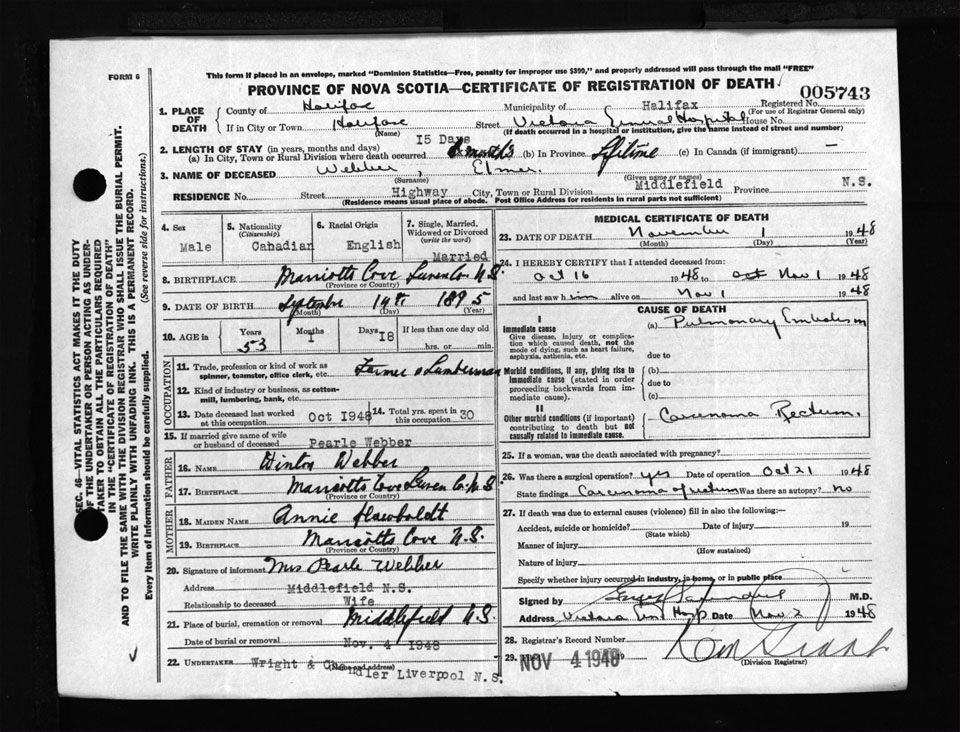 FORM 6
This form if placed in an envelope, marked "Dominion Statistics—Free, penalty for improper use $300," and properly addressed will pass through the mail "FREE"
PROVINCE OF NOVA SCOTIA—CERTIFICATE OF REGISTRATION OF DEATH
005743
1. PLACE OF DEATH
County of Halifax Municipality of Halifax Registered No.
(For use of Registrar General only)
If in City or Town Halifax Street Victoria General Hospital House No.
(Name) (If death occurred in a hospital or institution, give the name instead of street and number)
15 Days
2. LENGTH OF STAY (in years, months and days)
(a) In City, Town or Rural Division where death occurred months (b) In Province Lifetime (c) In Canada (if immigrant) —
3. NAME OF DECEASED Webber, Elmer.
(Surname) (Given name or names)
RESIDENCE No. Street Highway City, Town or Rural Division Middlefield Province N.S.
(Residence means usual place of abode. Post Office Address for residents in rural parts not sufficient)
4. Sex
Male
5. Nationality
(Citizenship)
Cabadian
6. Racial Origin
English
7. Single, Married, Widowed or Divorced
(write the word)
Married
8. BIRTHPLACE Marriotts Cove Lunen Co. N.S.
(Province or Country)
9. DATE OF BIRTH September 14th 1895
(Month) (Day) (Year)
10. AGE in Years 53 Months 1 Days 18 If less than one day
hrs. or min.
OCCUPATION
11. Trade, profession or kind of work as spinner, teamster, office clerk, etc. Farmer & Lumberman
12. Kind of industry or business, as cotton-mill, lumbering, bank, etc.
13. Date deceased last worked at this occupation Oct 1948
14. Total yrs. spent in this occupation 30
15. If married give name of wife or husband of deceased Pearle Webber
FATHER
16. NAME Hinton Webber
17. BIRTHPLACE Marriotts Cove Lunen Co. N.S.
(Province or Country)
MOTHER
18. MAIDEN NAME Annie Hawboldt
19. BIRTHPLACE Marriotts Cove N.S.
(Province or Country)
20. Signature of informant Mrs Pearle Webber
Address Middlefield N.S.
Relationship to deceased Wife
21. Place of burial, cremation or removal Middlefield N.S.
Date of burial or removal Nov. 4 1948
22. UNDERTAKER Wright & Chandler Liverpool N.S.
(Name and address)
MEDICAL CERTIFICATE OF DEATH
23. DATE OF DEATH November 1 1948
(Month) (Day) (Year)
24. I HEREBY CERTIFY that I attended deceased from:
Oct 16 1948 to Oct Nov 1 1948
and last saw him alive on Nov 1 1948
CAUSE OF DEATH
I
Immediate cause
Give disease, injury or complication which caused death, not the mode of dying, such as heart failure, asphyxia, asthenia, etc.
(a) Pulmonary Embolism
due to
Morbid conditions, if any, giving rise to immediate cause (stated in order proceeding backwards from immediate cause).
(b)
due to
(c)
II
Other morbid conditions (if important) contributing to death but not causally related to immediate cause.
Carcinoma Rectum.
25. If a woman, was the death associated with pregnancy?
26. Was there a surgical operation? yes Date of operation Oct 21 1948
State findings Carcinoma of rectum Was there an autopsy? no
27. If death was due to external causes (violence) fill in also the following:—
Accident, suicide or homicide? Date of injury 19
(State which)
Manner of injury
(How sustained)
Nature of injury
Specify whether injury occurred in industry, in home, or in public place
Signed by M.D.
Address Victoria Gen Hosp Date Nov 2 1948
28. Registrar's Record Number
29. NOV 4 1948 19
(Division Registrar)
SEC. 46—VITAL STATISTICS ACT MAKES IT THE DUTY
OF THE UNDERTAKER OR PERSON ACTING AS UNDER-
TAKER TO OBTAIN ALL THE PARTICULARS REQUIRED
IN THE "CERTIFICATE OF REGISTRATION OF DEATH"
AND TO FILE THE SAME WITH THE DIVISION REGISTRAR WHO SHALL ISSUE THE BURIAL PERMIT.
WRITE PLAINLY WITH UNFADING INK. THIS IS A PERMANENT RECORD.
Every item of information should be carefully supplied. (See reverse side for instructions.)